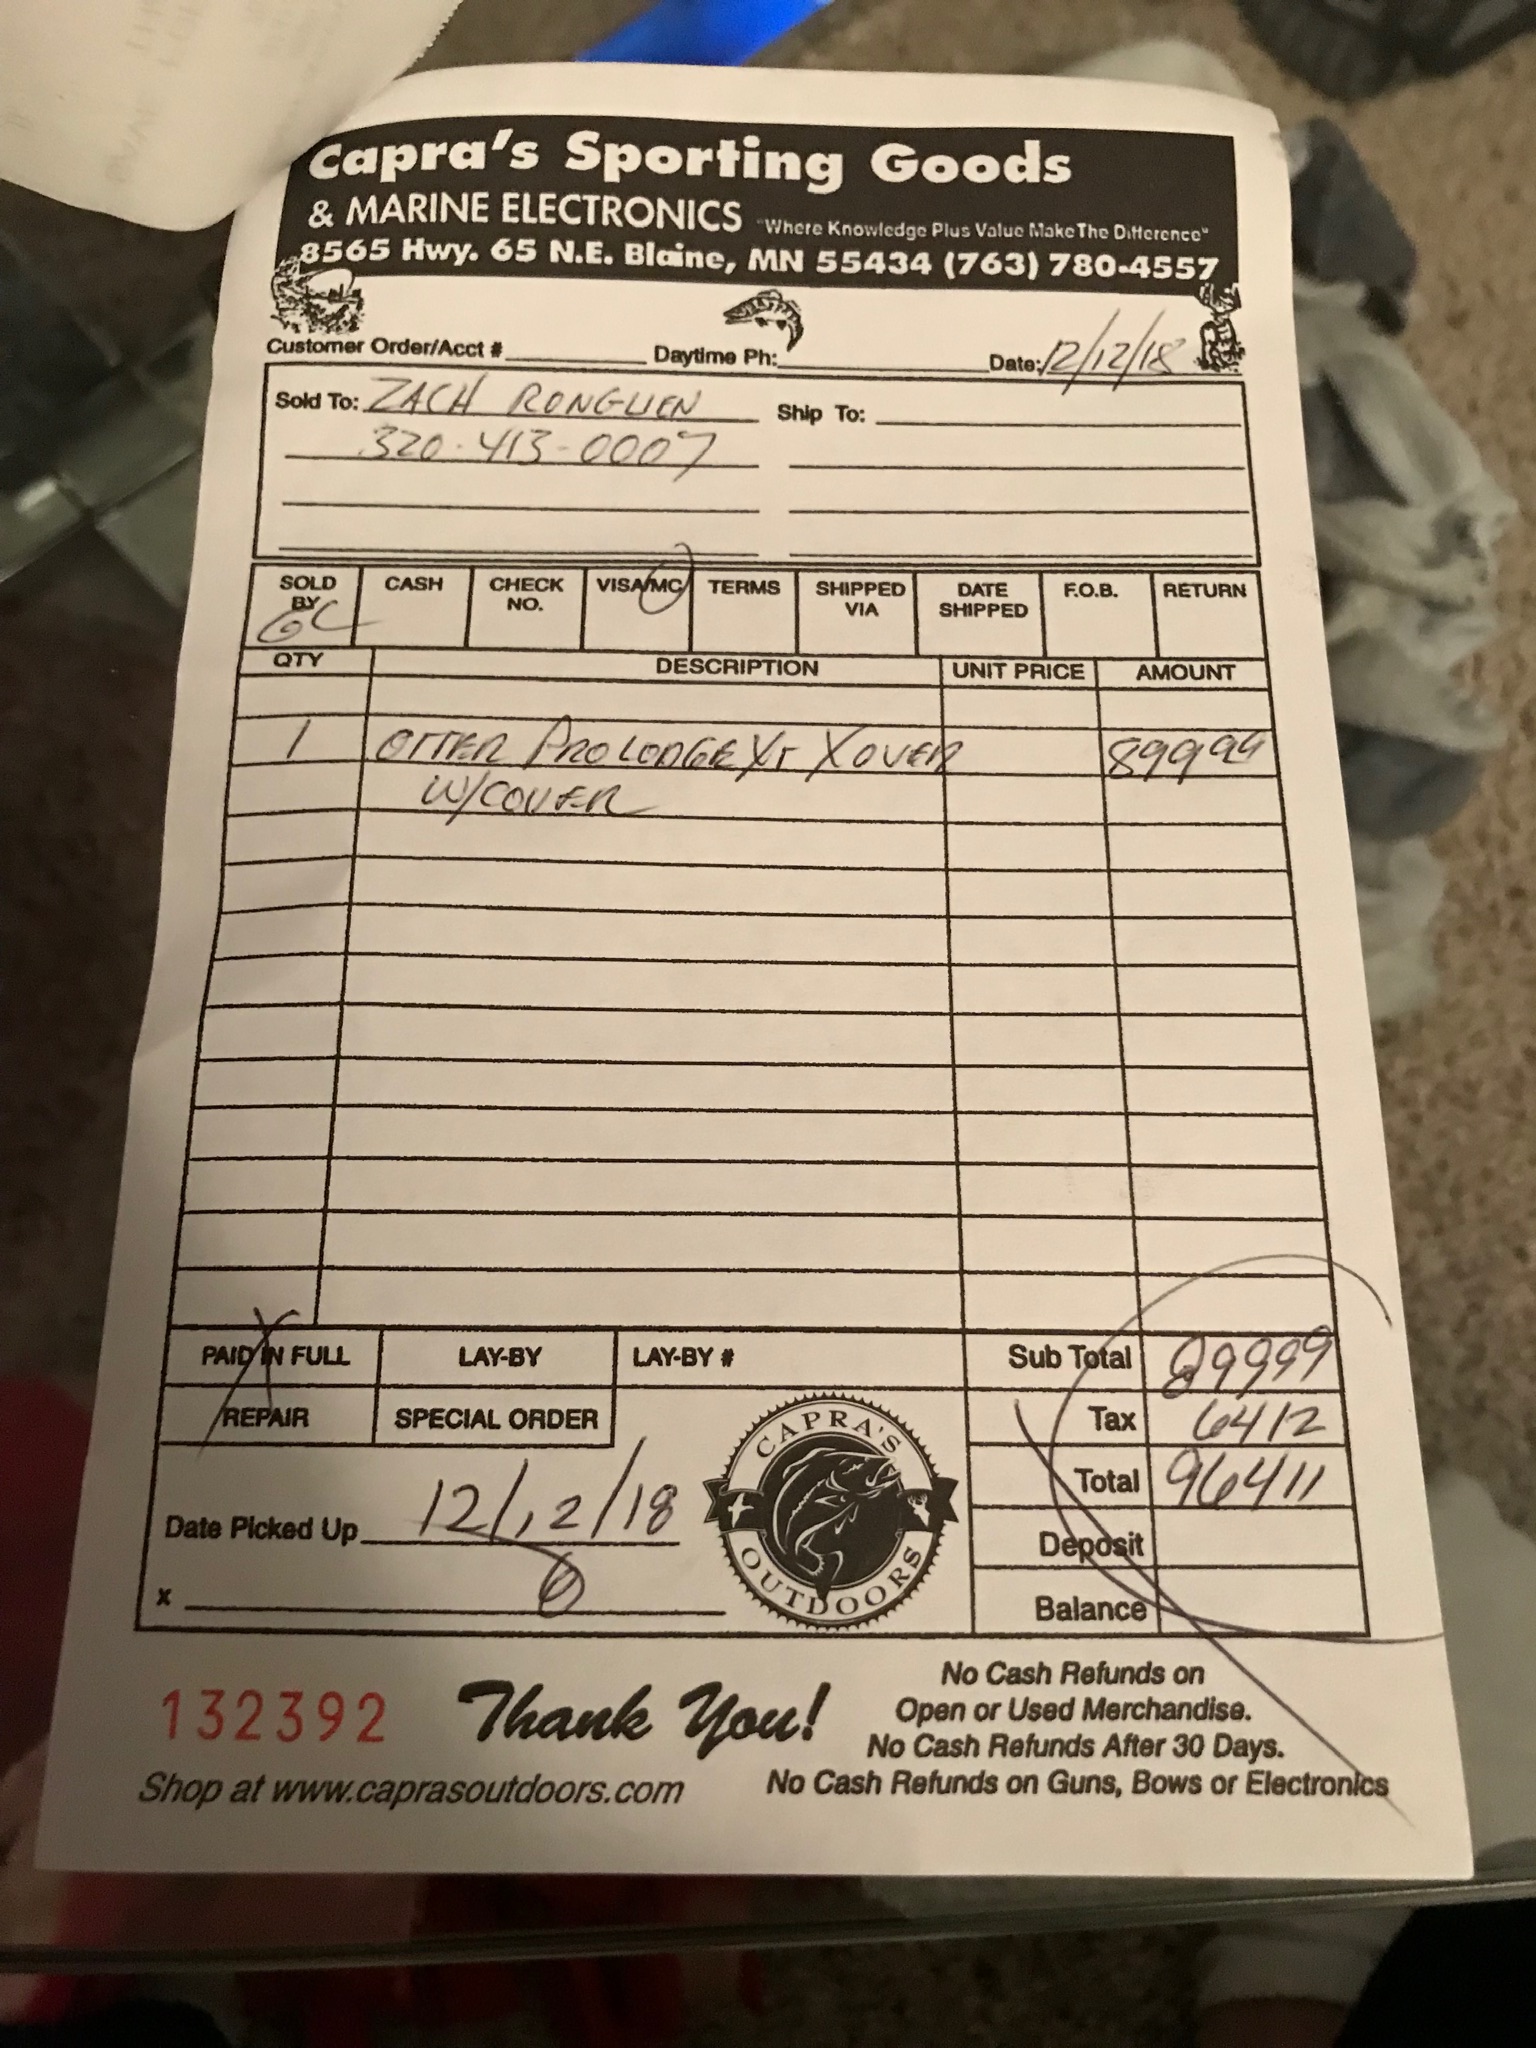 Capra's Sporting Goods
& MARINE ELECTRONICS "Where Knowledge Plus Value Make The Difference"
8565 Hwy. 65 N.E. Blaine, MN 55434 (763) 780-4557
Customer Order/Acct # Daytime Ph: Date: 12/12/18
Sold To: ZACH RONGLIEN Ship To:
320-413-0007
SOLD BY CASH CHECK NO. VISA/MC TERMS SHIPPED VIA DATE SHIPPED F.O.B. RETURN
GC
QTY DESCRIPTION UNIT PRICE AMOUNT
1 OTTER PRO LODGE XT XOVER 89999
W/COVER
PAID IN FULL LAY-BY LAY-BY # Sub Total 89999
REPAIR SPECIAL ORDER Tax 6412
Total 96411
Date Picked Up 12/12/18 Deposit
x Balance
CAPRA'S OUTDOORS
132392 Thank You!
Shop at www.caprasoutdoors.com
No Cash Refunds on
Open or Used Merchandise.
No Cash Refunds After 30 Days.
No Cash Refunds on Guns, Bows or Electronics